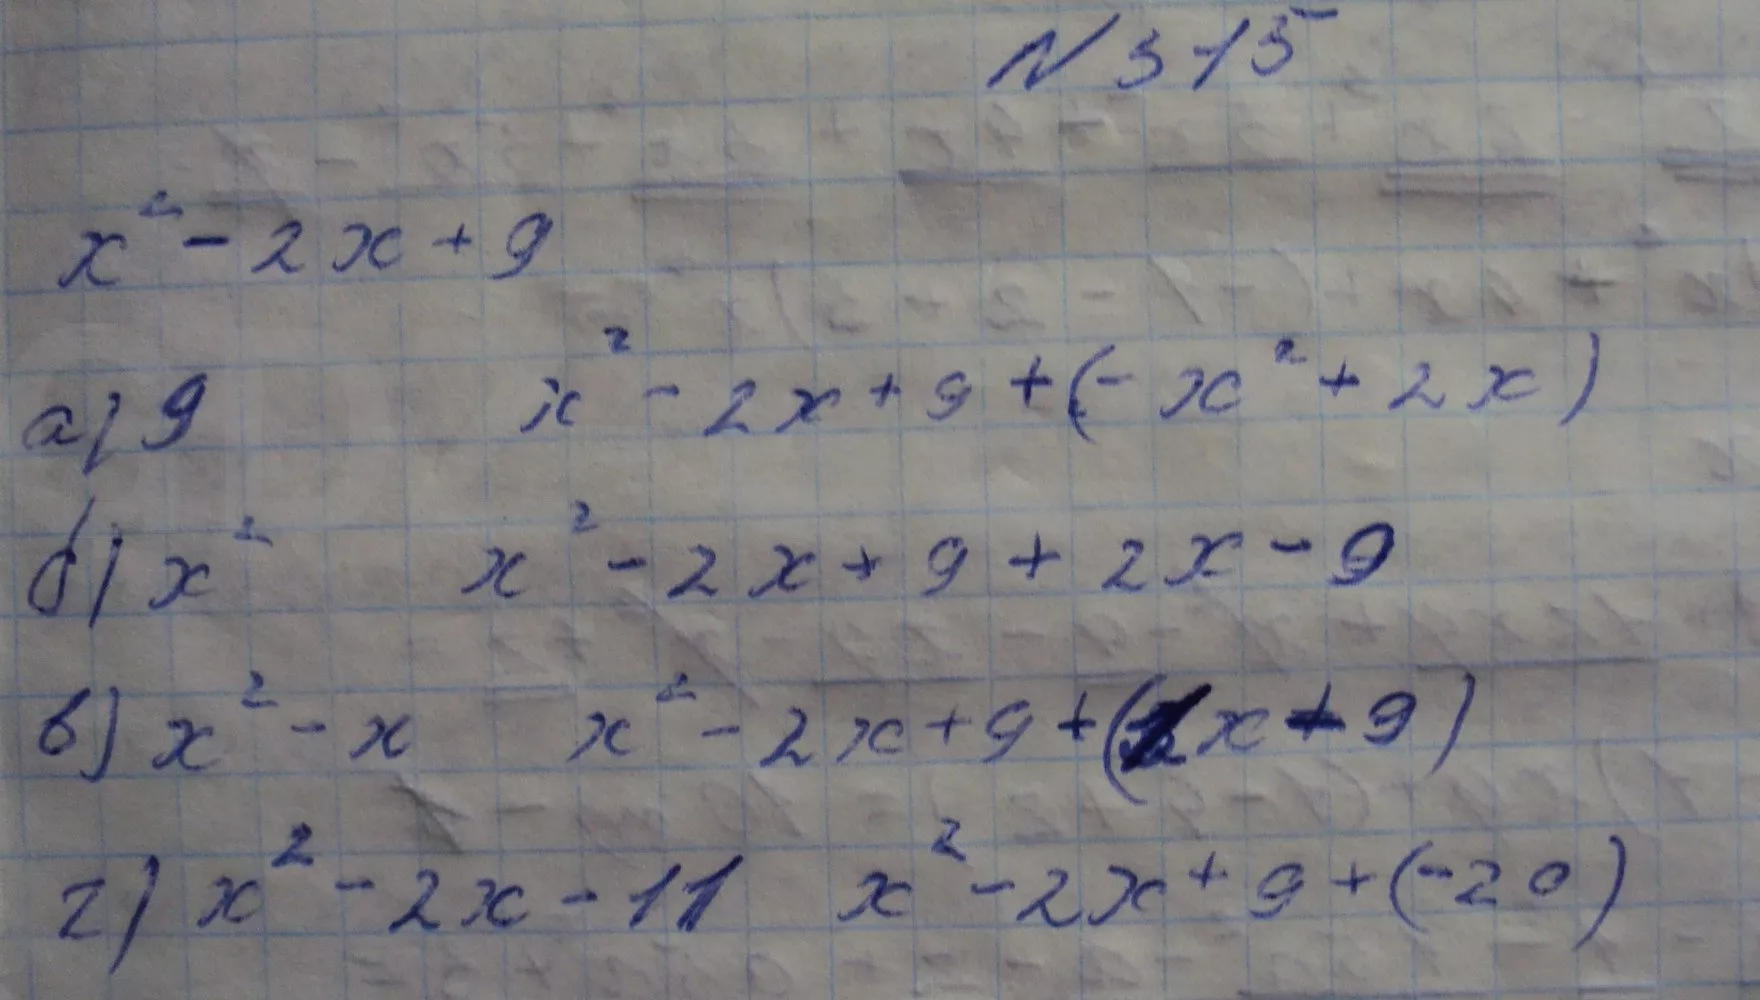 N 315
x² - 2x + 9
а) 9 x² - 2x + 9 + (- x² + 2x)
б) x² x² - 2x + 9 + 2x - 9
в) x² - x x² - 2x + 9 + (x - 9)
г) x² - 2x - 11 x² - 2x + 9 + (-20)